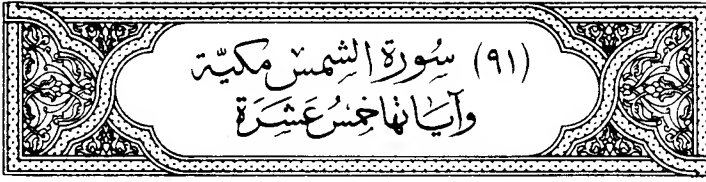 (٩١) سُورَة الشمس مكيّة
وَآيَاتها خمسُ عَشَرَة